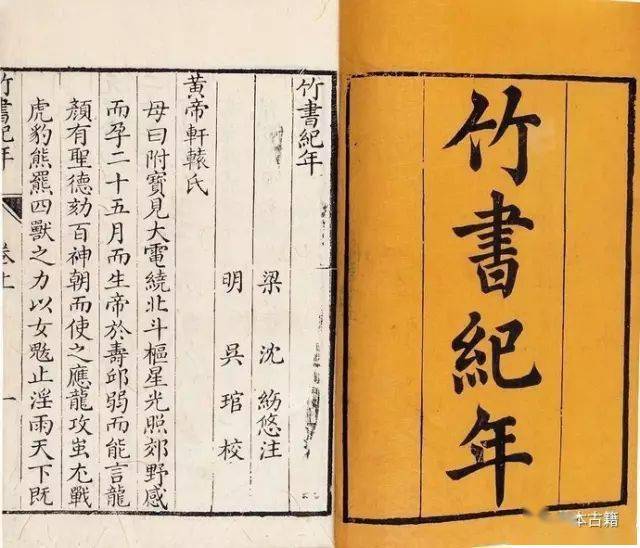 竹書紀年
竹書紀年
梁 沈 約 注
明 吳 琯 校
黃帝軒轅氏
母曰附寶見大電繞北斗樞星光照郊野感
而孕二十五月而生帝於壽邱弱而能言龍
顏有聖德劾百神朝而使之應龍攻蚩尤戰
虎豹熊羆四獸之力以女魃止淫雨天下既
竹書紀年 卷上 一
本古籍